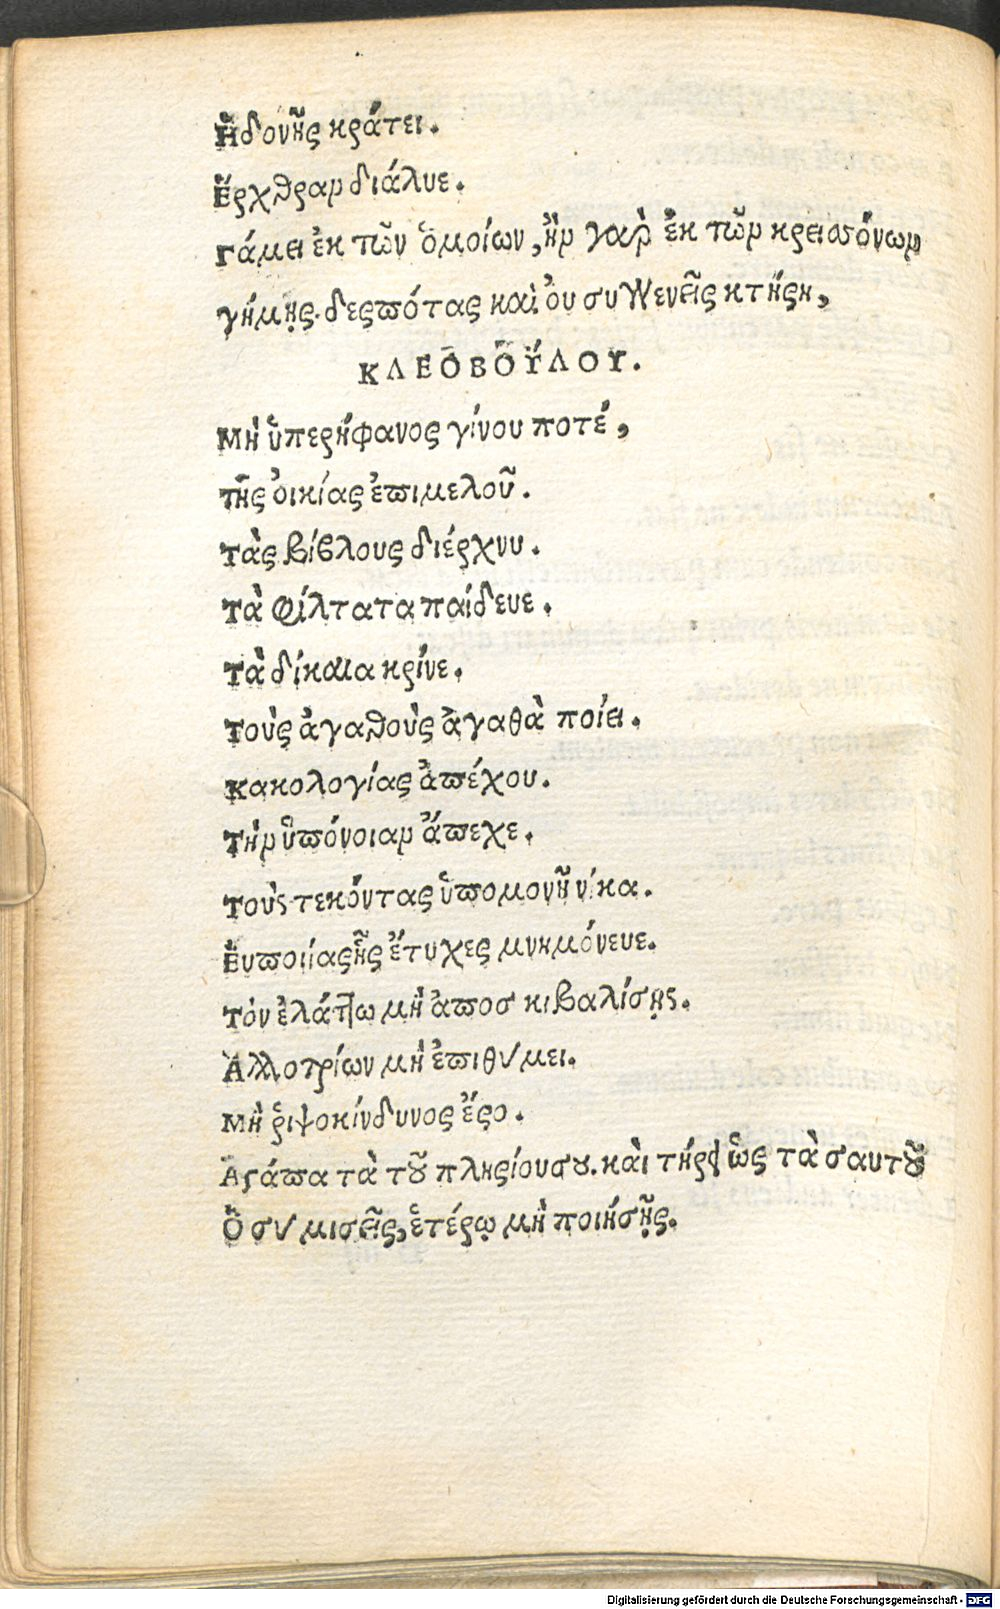 Ἡδονῆς κράτει.
Ἔρχθραν διάλυε.
Γάμει ἐκ τῶν ὁμοίων, ἢν γαρ̀ ἐκ τῶν κρεισσόνων
γήμῃς. δεσπότας καὶ. ὀυ συγγενεῖς κτήσῃ,
ΚΛΕΟΒΟΎΛΟΥ.
Μὴ ὑπερήφανος γίνου ποτέ,
τῆς ὀικίας ἐπιμελοῦ.
Τὰς βίβλους διέρχνυ.
Τὰ φίλτατα παίδευε.
Τὰ δίκαια κρίνε.
Τοὺς ἀγαθοὺς ἀγαθὰ ποίει.
Κακολογίας ἀπέχου.
Τὴν ὑπόνοιαν ἄπεχε.
Τοὺς τεκόντας ὑπομονῇ νίκα.
Ἐυποιίας ἧς ἔτυχες μνημόνευε.
Τὸν ἐλάττω μὴ ἀποσκιβαλίσῃς.
Ἀλλοτρίων μὴ ἐπιθύμει.
Μὴ ῥιψοκίνδυνος ἔσο.
Ἀγάπα τὰ τοῦ πλησίου σου. κὰι τήρει ὡς τὰ σαυτοῦ
Ὃ σὺ μισεῖς, ἑτέρῳ μὴ ποιήσῃς.
Digitalisierung gefördert durch die Deutsche Forschungsgemeinschaft - DFG